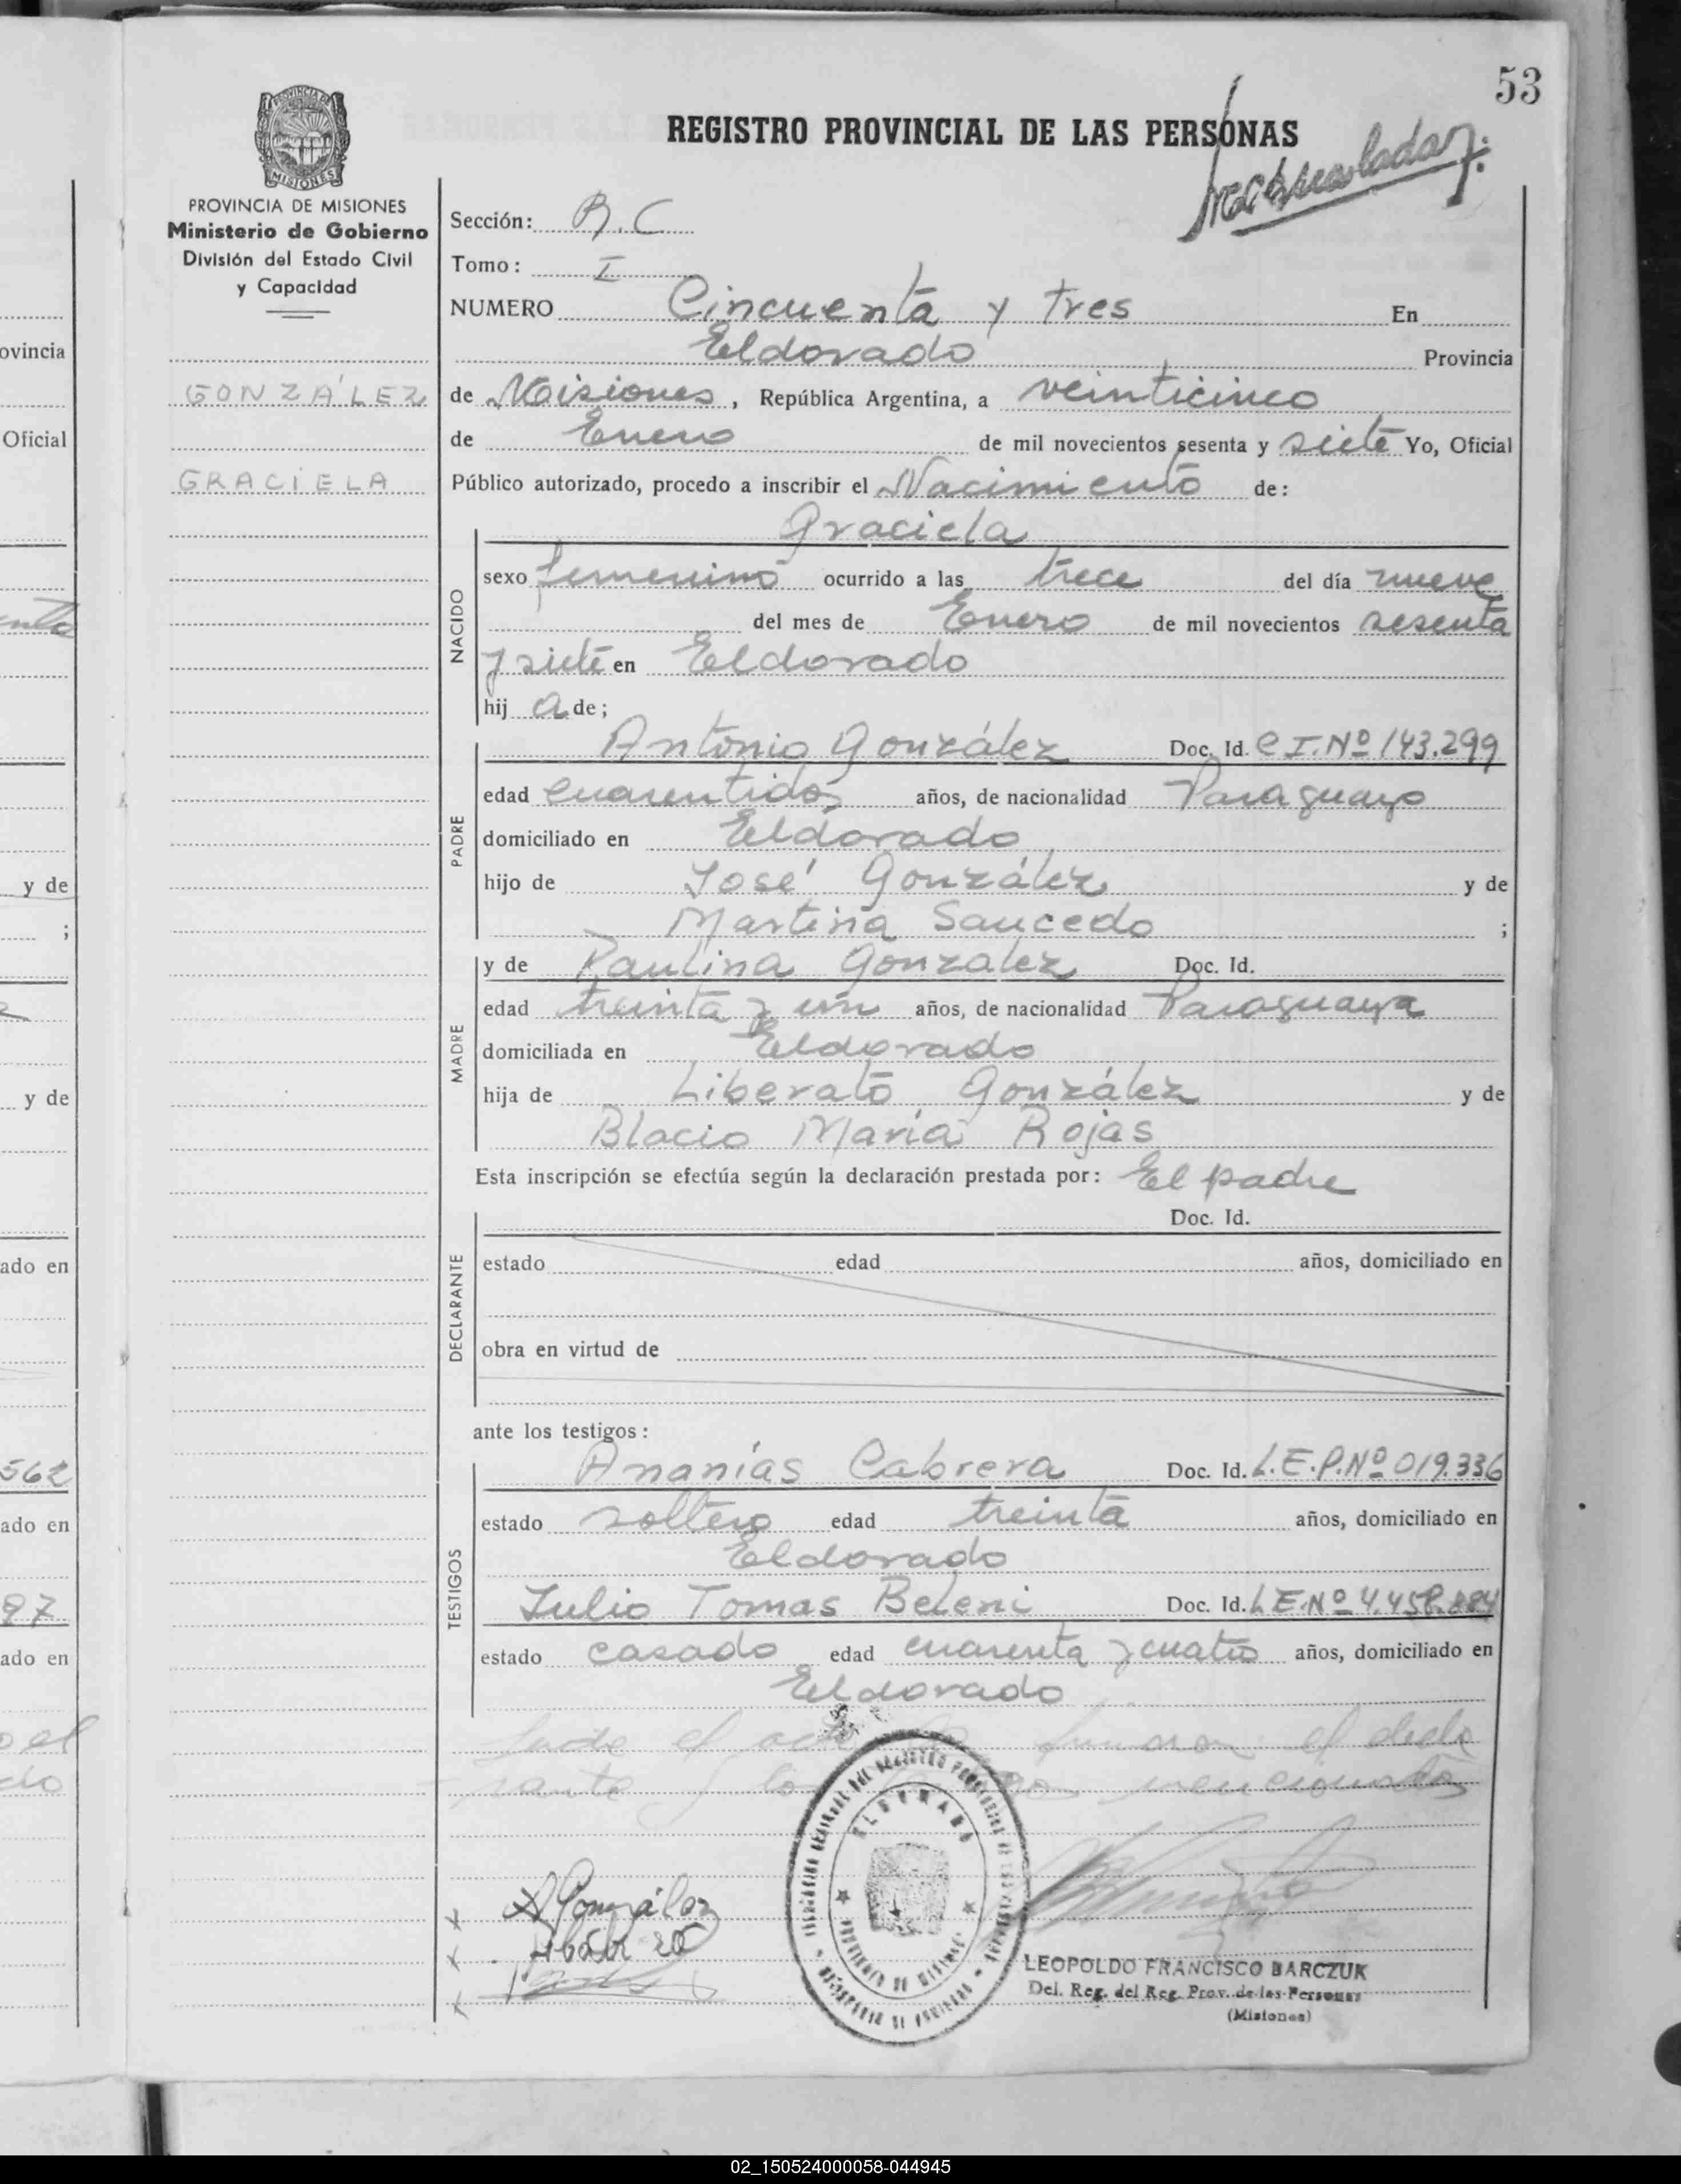 53
REGISTRO PROVINCIAL DE LAS PERSONAS
PROVINCIA DE MISIONES
MISIONES
PROVINCIA DE MISIONES
Ministerio de Gobierno
División del Estado Civil
y Capacidad
GONZÁLEZ
GRACIELA
Sección: R.C
Tomo: I
NUMERO Cincuenta y tres En
Eldorado Provincia
de Misiones, República Argentina, a veinticinco
de Enero de mil novecientos sesenta y siete Yo, Oficial
Público autorizado, procedo a inscribir el Nacimiento de:
Graciela
NACIDO
sexo femenino ocurrido a las trece del día nueve
del mes de Enero de mil novecientos sesenta
y siete en Eldorado
hij a de;
PADRE
Antonio González Doc. Id. C I. Nº 143.299
edad cuarentidos años, de nacionalidad Paraguayo
domiciliado en Eldorado
hijo de José González y de
Martina Saucedo ;
MADRE
y de Paulina González Doc. Id.
edad treinta y un años, de nacionalidad Paraguaya
domiciliada en Eldorado
hija de Liberato González y de
Blacio María Rojas
Esta inscripción se efectúa según la declaración prestada por: El padre
DECLARANTE
Doc. Id.
estado edad años, domiciliado en
obra en virtud de
ante los testigos:
TESTIGOS
Ananías Cabrera Doc. Id. L.E.P.Nº 019.336
estado soltero edad treinta años, domiciliado en
Eldorado
Julio Tomas Beleni Doc. Id. L E.Nº 4.458.884
estado casado edad cuarenta y cuatro años, domiciliado en
Eldorado
el acta firman el decla
rante y los mencionados
ELDORADO
PROVINCIA DE MISIONES
A González
LEOPOLDO FRANCISCO BARCZUK
Del. Reg. del Reg. Prov. de las Personas
(Misiones)
ovincia
Oficial
y de
;
y de
ado en
562
ado en
97
ado en
02_150524000058-044945